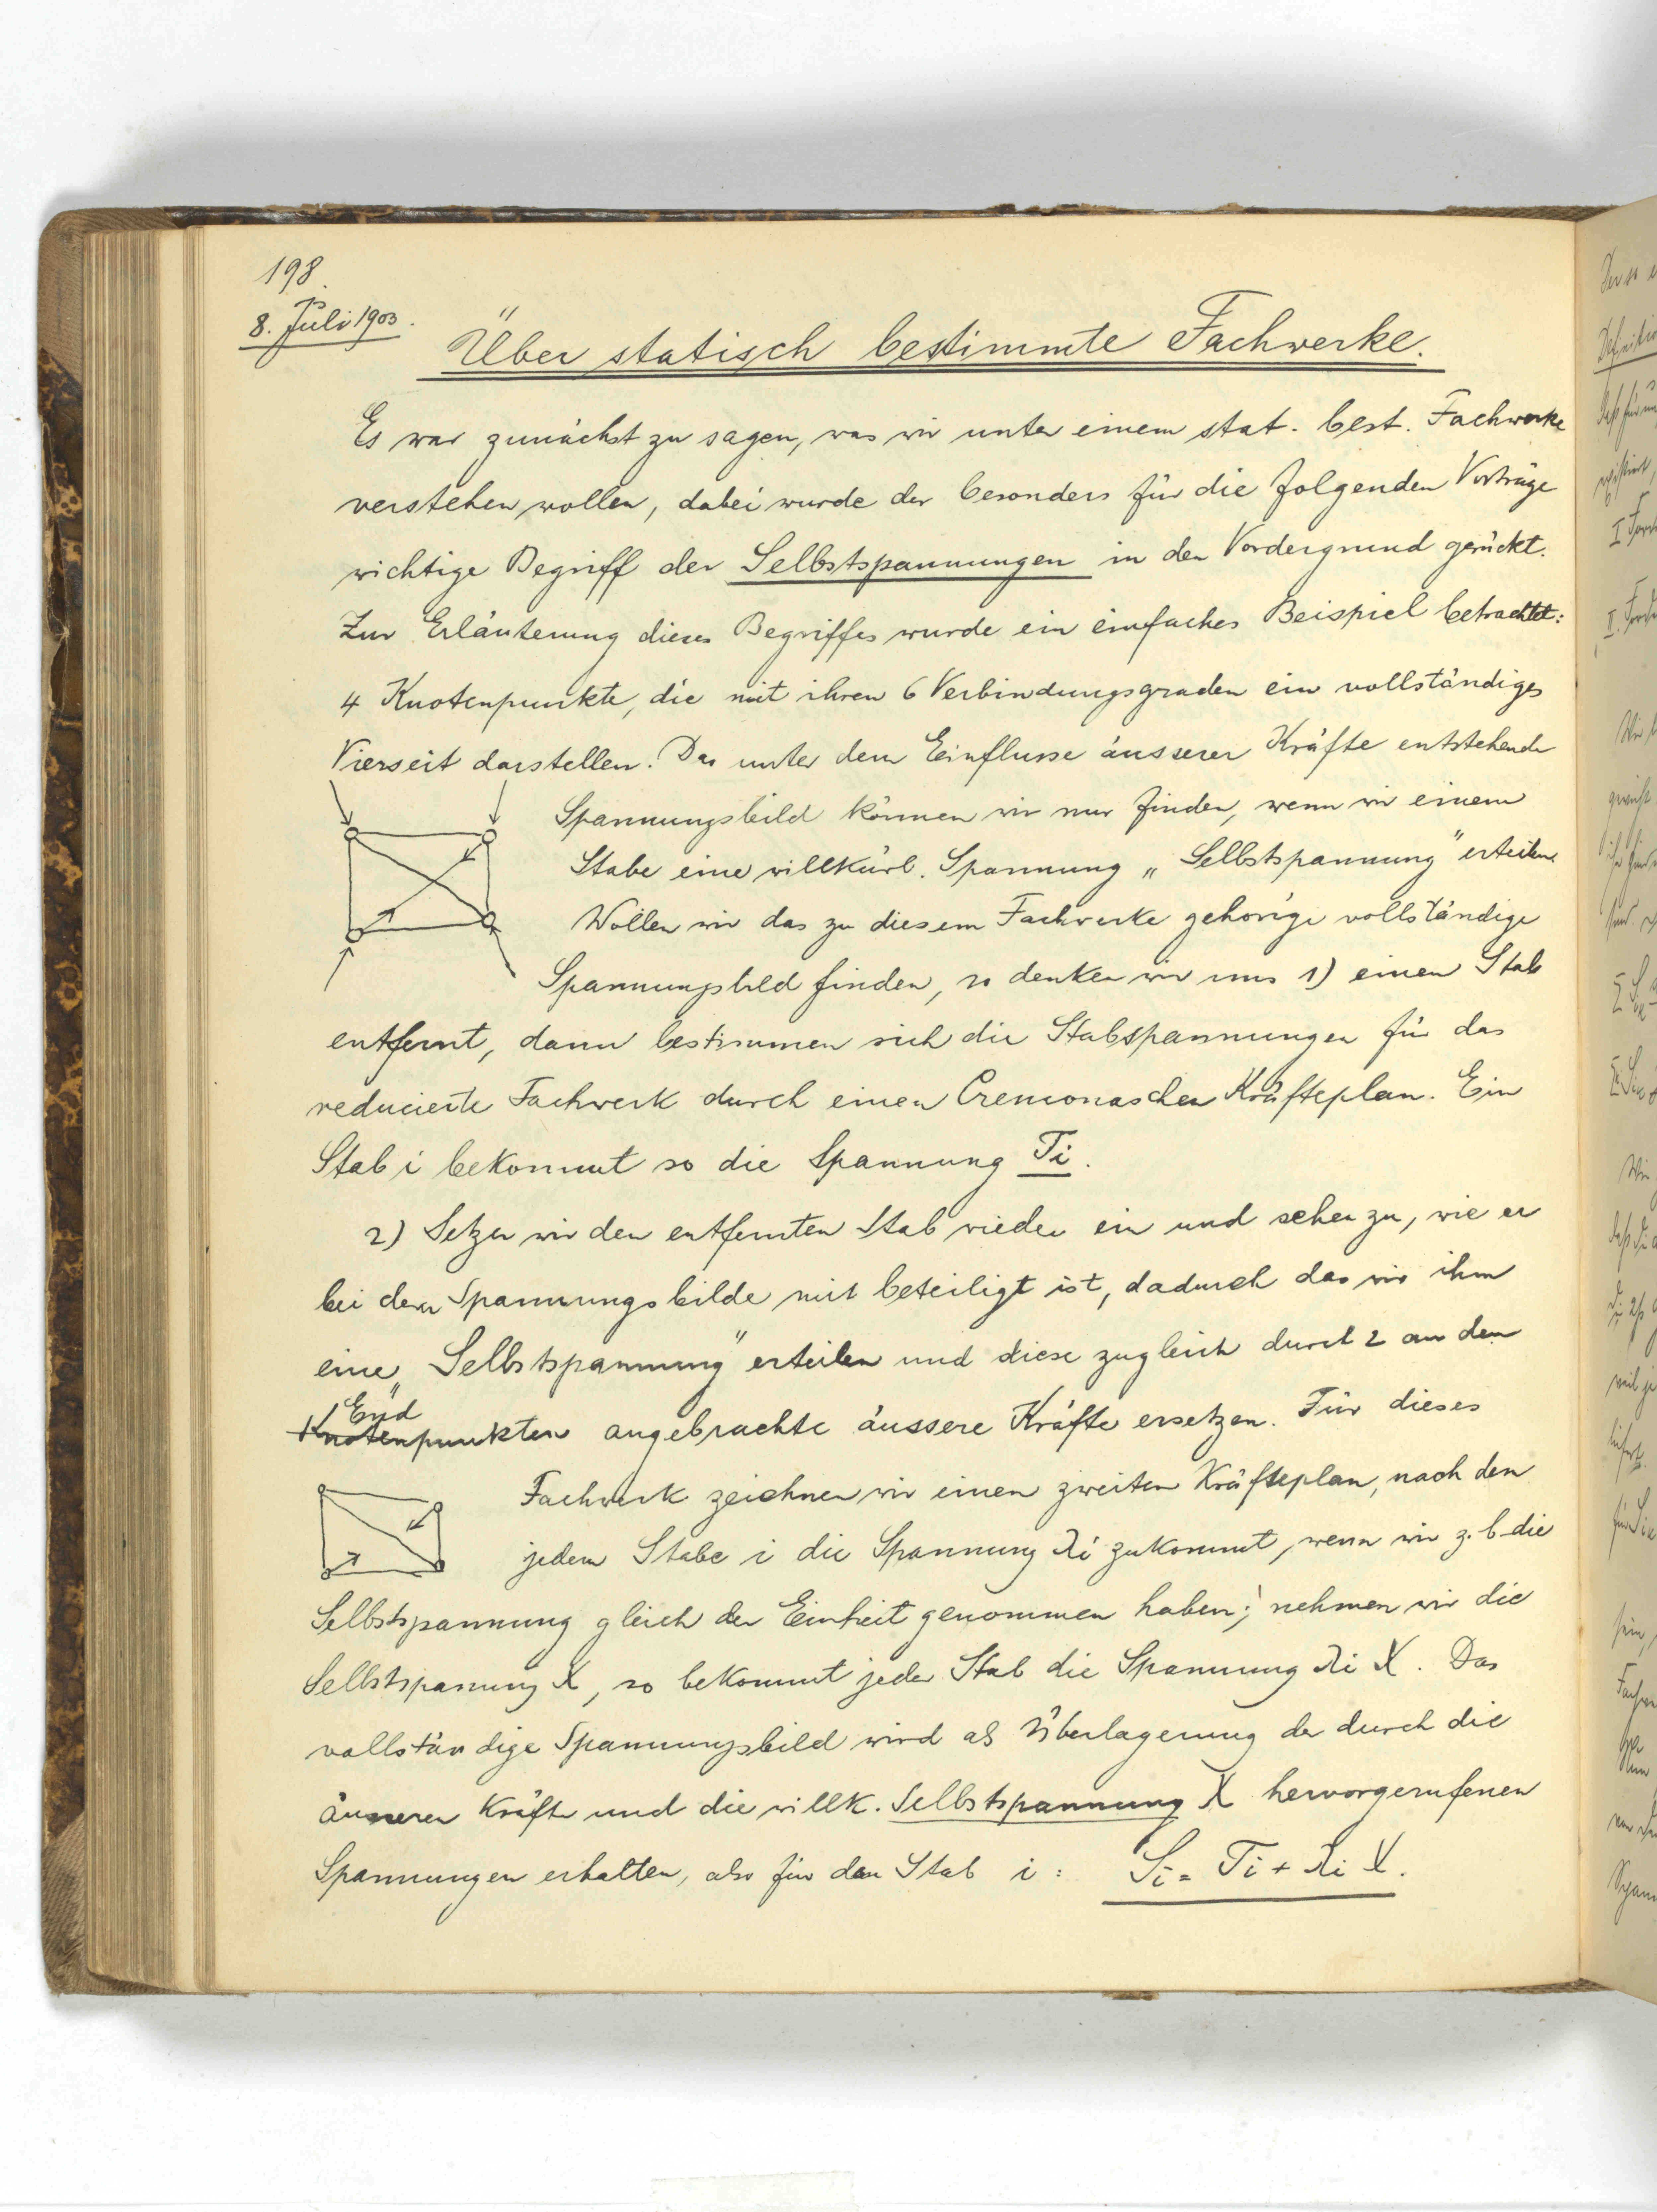 198.
8. Juli 1903.
Über statisch bestimmte Fachwerke.
Es war zunächst zu sagen, was wir unter einem stat. best. Fachwerke
verstehen wollen, dabei wurde der besonders für die folgenden Vorträge
wichtige Begriff der Selbstspannungen in den Vordergrund gerückt.
Zur Erläuterung dieses Begriffes wurde ein einfaches Beispiel betrachtet:
4 Knotenpunkte, die mit ihren 6 Verbindungsgraden ein vollständiges
Vierseit darstellen. Das unter dem Einflusse äusserer Kräfte entstehende
Spannungsbild können wir nur finden, wenn wir einem
Stabe eine willkürl. Spannung „Selbstspannung" erteilen.
Wollen wir das zu diesem Fachwerke gehörige vollständige
Spannungsbild finden, so denken wir uns 1) einen Stab
entfernt, dann bestimmen sich die Stabspannungen für das
reducierte Fachwerk durch einen Cremonaschen Kräfteplan. Ein
Stab i bekommt so die Spannung Ti.
2) Setzen wir den entfernten Stab wieder ein und sehen zu, wie er
bei dem Spannungsbilde mit beteiligt ist, dadurch das wir ihm
eine „Selbstspannung" erteilen und diese zugleich durch 2 an den
End
Knotenpunkten angebrachte äussere Kräfte ersetzen. Für dieses
Fachwerk zeichnen wir einen zweiten Kräfteplan, nach den
jedem Stabe i die Spannung λi zukommt, wenn wir z. b. die
Selbstspannung gleich der Einheit genommen haben; nehmen wir die
Selbstspannung X, so bekommt jeder Stab die Spannung λi X. Das
vollständige Spannungsbild wird als Überlagerung der durch die
äusseren Kräfte und die willk. Selbstspannung X hervorgerufenen
Spannungen erhalten, also für den Stab i: Si = Ti + λi X.